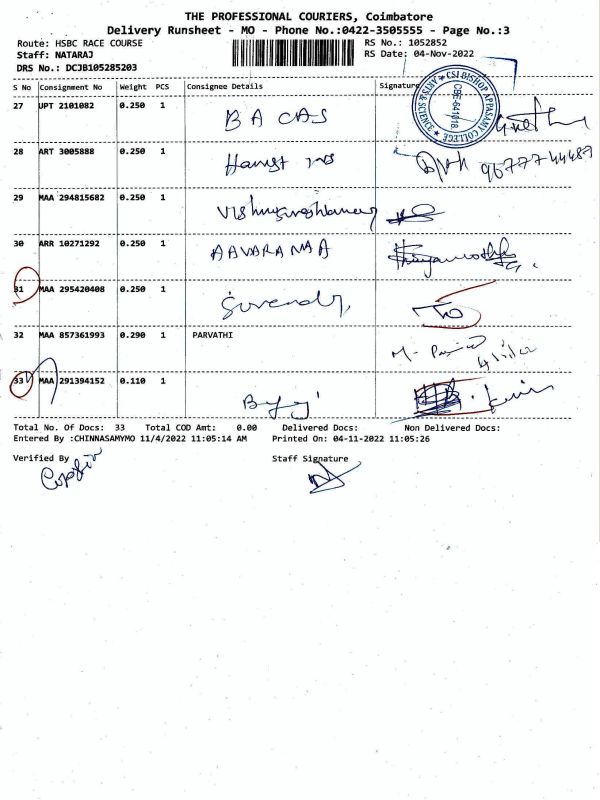 THE PROFESSIONAL COURIERS, Coimbatore
Delivery Runsheet - MO - Phone No.:0422-3505555 - Page No.:3
Route: HSBC RACE COURSE RS No.: 1052852
Staff: NATARAJ RS Date: 04-Nov-2022
DRS No.: DCJB105285203
S No Consignment No Weight PCS Consignee Details Signature
27 UPT 2101082 0.250 1 BACAS
CSI BISHOP APPASAMY COLLEGE ARTS & SCIENCE CBE-641018
28 ART 3005888 0.250 1 9677744489
29 MAA 294815682 0.250 1
30 ARR 10271292 0.250 1 AAVARAMAA
31 MAA 295420408 0.250 1
32 MAA 857361993 0.290 1 PARVATHI
33 MAA 291394152 0.110 1
Total No. Of Docs: 33 Total COD Amt: 0.00 Delivered Docs: Non Delivered Docs:
Entered By :CHINNASAMYMO 11/4/2022 11:05:14 AM Printed On: 04-11-2022 11:05:26
Verified By Staff Signature